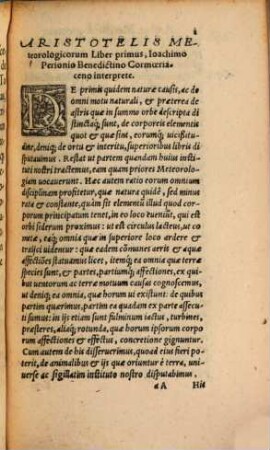 ARISTOTELIS ME-
teorologicorum Liber primus, Ioachimo
Perionio Benedictino Cormœria-
ceno interprete.
DE primis quidem naturæ causis, ac de
omni motu naturali, & præterea de
astris quæ in summo orbe descripta di
stinctaq; sunt, de corporeis elementis
quot & quæ sint, eorumq; vicissitu-
dine, deniq; de ortu & interitu, superioribus libris di
sputauimus. Restat ut partem quandam huius insti
tuti nostri tractemus, eam quam priores Meteorolo-
giam uocauerunt. Hæc autem ratio eorum omnium
disciplinam profitetur, quæ natura quidē, sed minus
rata & constante, quàm sit elementi illius quod cor-
porum principatum tenet, in eo loco eueniūt, qui est
orbi siderum proximus: ut est circulus lacteus, ut co
metæ, eaq; omnia quæ in superiore loco ardere &
traijci uidemus: quæ eadem cōmunes aeris & aquæ
affectiōes statuamus licet, itemq; eæ omnia quæ terræ
species sunt, & partes, partiumq; affectiones, ex qui
bus uentorum ac terræ motuum causas cognoscemus,
ut deniq; ea omnia, quæ horum ui existunt: de quibus
partim quærimus, partim ea quadam ex parte assecu
ti sumus: in ijs etiam sunt fulminum iactus, turbines,
præsteres, aliaq; rotunda, quæ horum ipsum corpo
rum affectiones & effectus, concretione gignuntur.
Cum autem de his disseruerimus, quoad eius fieri po-
terit, de animalibus & ijs quæ oriuntur è terra, uni-
uersè ac sigillatim instituto nostro disputabimus.
A Hic